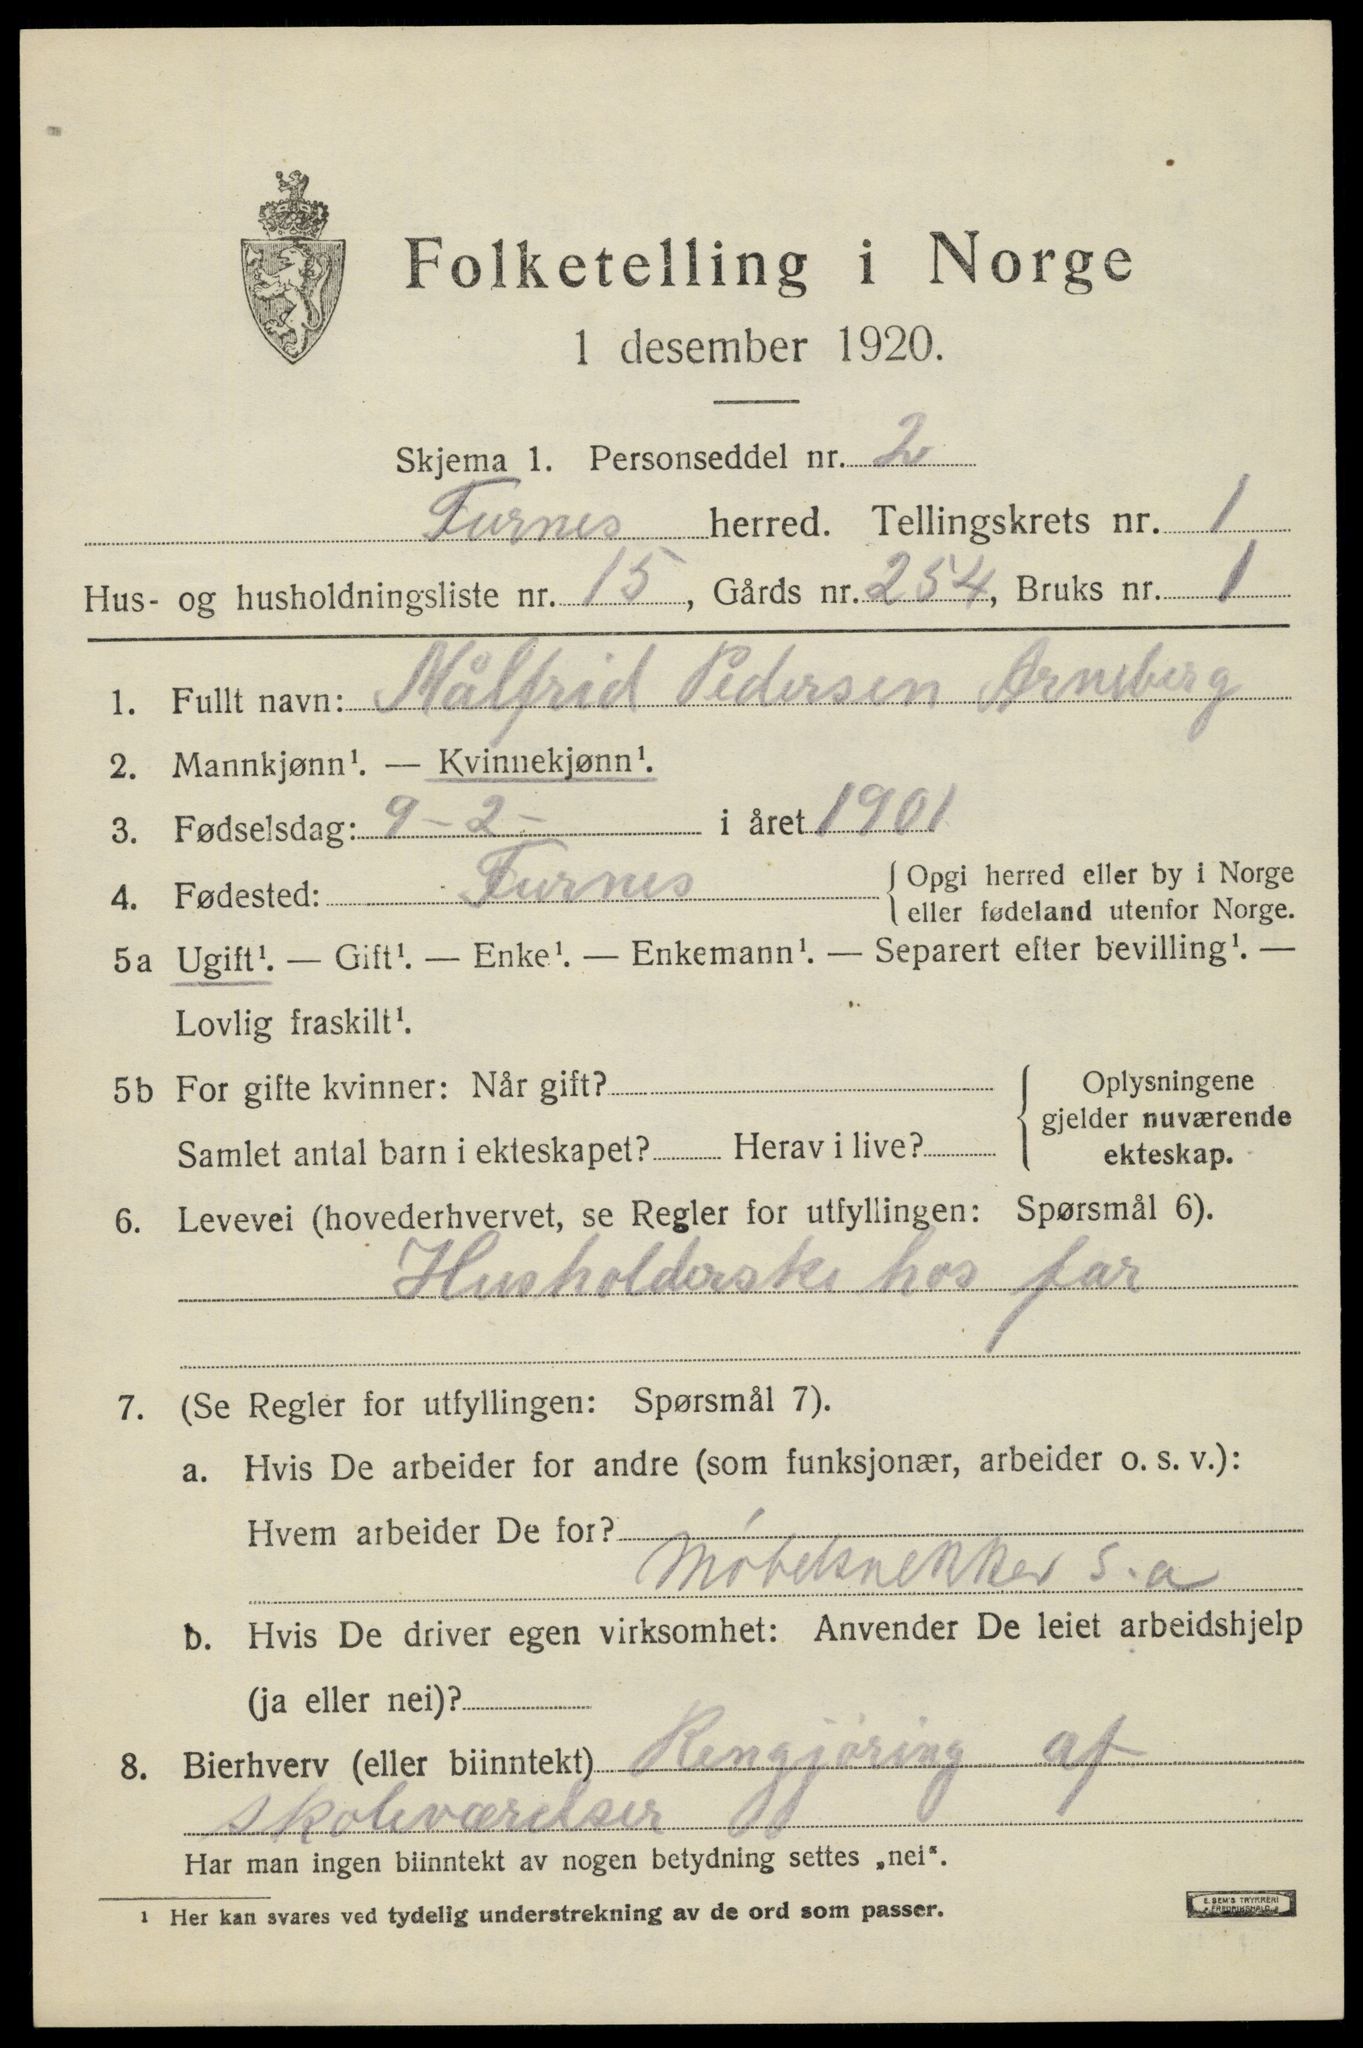 Folketelling i Norge
1 desember 1920.
Skjema 1. Personseddel nr. 2
Furnes herred. Tellingskrets nr. 1
Hus- og husholdningsliste nr. 15, Gårds nr. 254, Bruks nr. 1
1. Fullt navn: Målfrid Pedersen Arneberg
2. Mannkjønn¹. — Kvinnekjønn¹.
3. Fødselsdag: 9-2- i året 1901
4. Fødested: Furnes { Opgi herred eller by i Norge
eller fødeland utenfor Norge.
5a Ugift¹. — Gift¹. — Enke¹. — Enkemann¹. — Separert efter bevilling¹. —
Lovlig fraskilt¹.
5b For gifte kvinner: Når gift? { Oplysningene
gjelder nuværende
Samlet antal barn i ekteskapet? Herav i live? ekteskap.
6. Levevei (hovederhvervet, se Regler for utfyllingen: Spørsmål 6).
Husholderske hos far
7. (Se Regler for utfyllingen: Spørsmål 7).
a. Hvis De arbeider for andre (som funksjonær, arbeider o. s. v.):
Hvem arbeider De for?
Møbelsnekker s.a
b. Hvis De driver egen virksomhet: Anvender De leiet arbeidshjelp
(ja eller nei)?
8. Bierhverv (eller biinntekt) Rengjøring af
skoleværelser
Har man ingen biinntekt av nogen betydning settes „nei“.
1 Her kan svares ved tydelig understrekning av de ord som passer.
E. SEM'S TRYKKERI
FREDRIKSHALD